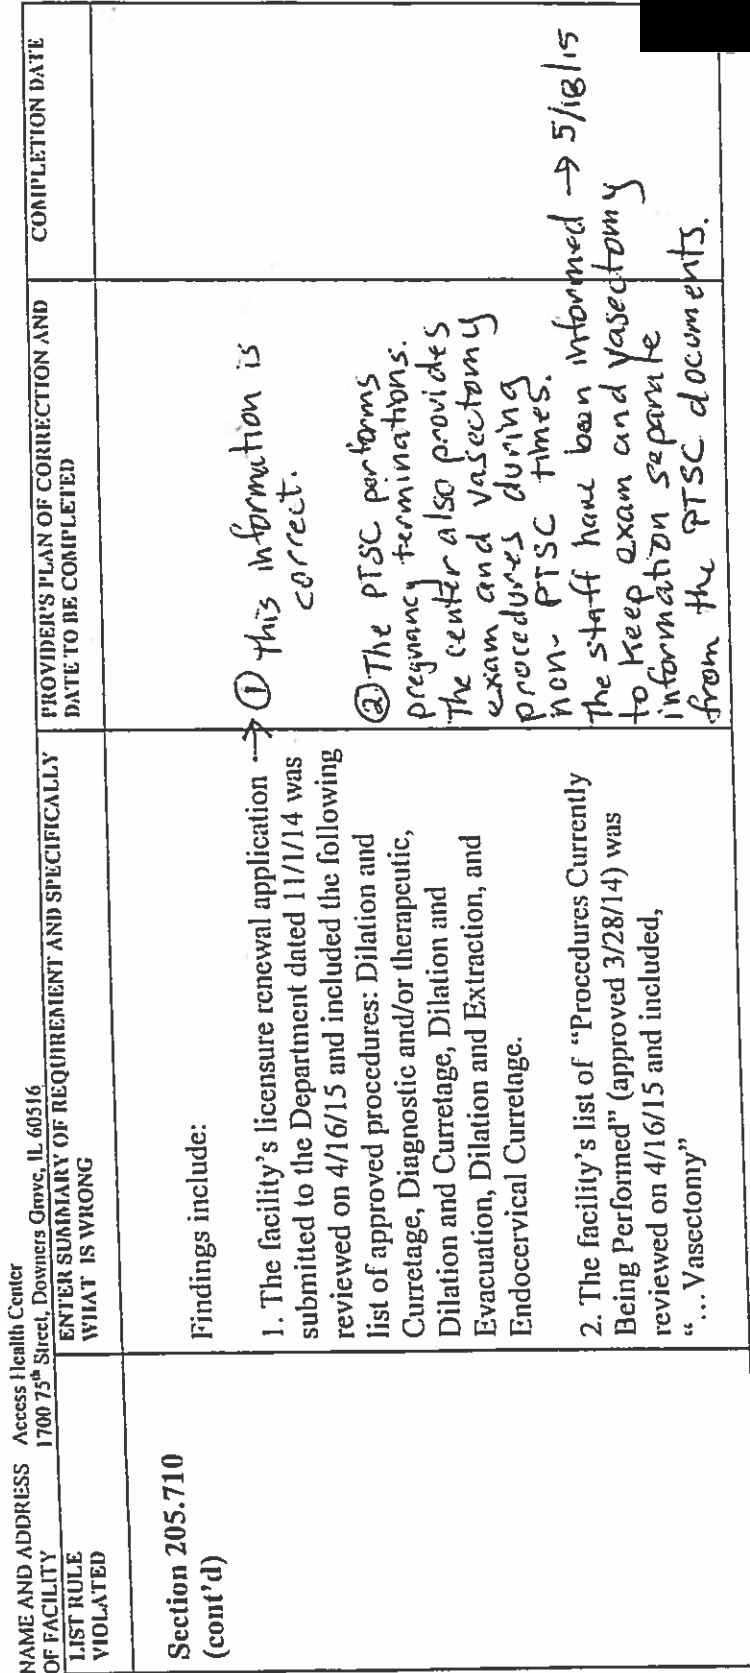 NAME AND ADDRESS Access Health Center
OF FACILITY 1700 75th Street, Downers Grove, IL 60516
LIST RULE
VIOLATED
ENTER SUMMARY OF REQUIREMENT AND SPECIFICALLY
WHAT IS WRONG
PROVIDER'S PLAN OF CORRECTION AND
DATE TO BE COMPLETED
COMPLETION DATE
Section 205.710
(cont'd)
Findings include:
1. The facility's licensure renewal application
submitted to the Department dated 11/1/14 was
reviewed on 4/16/15 and included the following
list of approved procedures: Dilation and
Curretage, Diagnostic and/or therapeutic,
Dilation and Curretage, Dilation and
Evacuation, Dilation and Extraction, and
Endocervical Curretage.
2. The facility's list of "Procedures Currently
Being Performed" (approved 3/28/14) was
reviewed on 4/16/15 and included,
"… Vasectomy"
→ ① this information is
correct.
② The PTSC performs
pregnancy terminations.
The center also provides
exam and vasectomy
procedures during
non-PTSC times.
the staff have been informed → 5/18/15
to keep exam and vasectomy
information separate
from the PTSC documents.